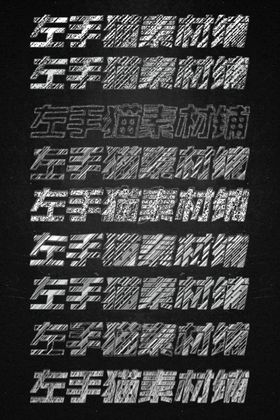 左手猫素材铺
左手猫素材铺
左手猫素材铺
左手猫素材铺
左手猫素材铺
左手猫素材铺
左手猫素材铺
左手猫素材铺
左手猫素材铺